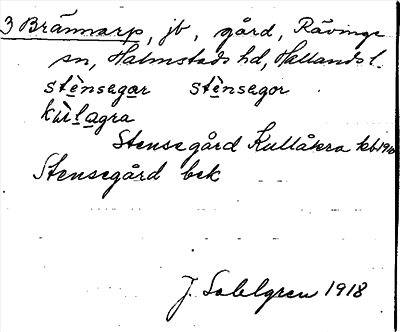 3 Brännarp, jb, gård, Rävinge
sn, Halmstads hd, Hallands l.
stènsegar stènsegor
kùlagra
Stensegård Kullåkra kb 19
Stensegård bek
J. Sahlgren 1918